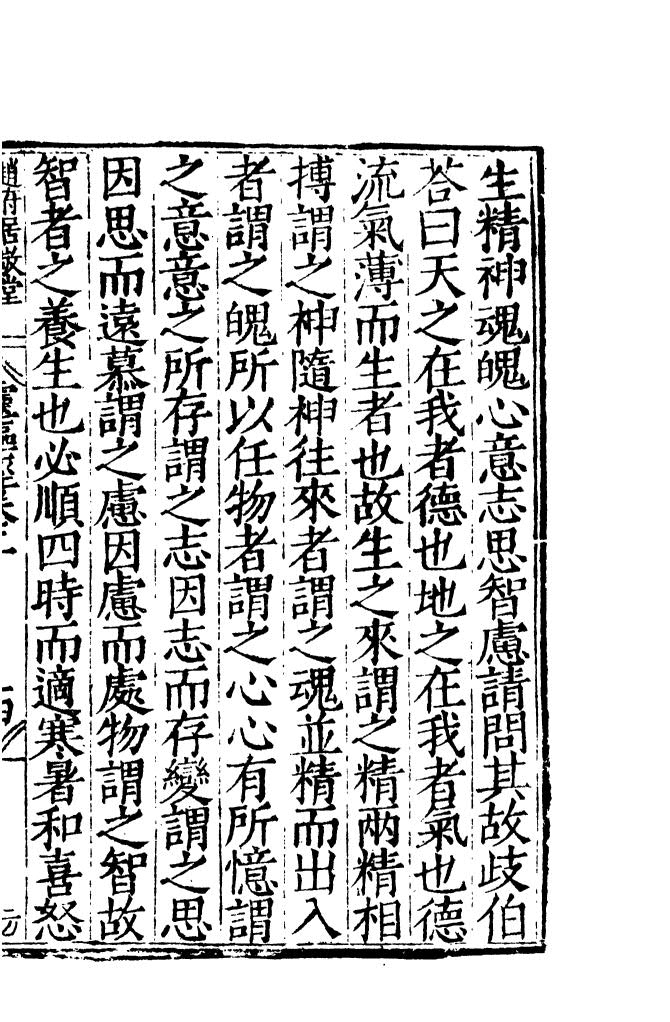 生精神魂魄心意志思智慮請問其故歧伯
荅曰天之在我者德也地之在我者氣也德
流氣薄而生者也故生之來謂之精兩精相
搏謂之神隨神往來者謂之魂並精而出入
者謂之魄所以任物者謂之心心有所憶謂
之意意之所存謂之志因志而存變謂之思
因思而遠慕謂之慮因慮而處物謂之智故
智者之養生也必順四時而適寒暑和喜怒
趙府居敬堂